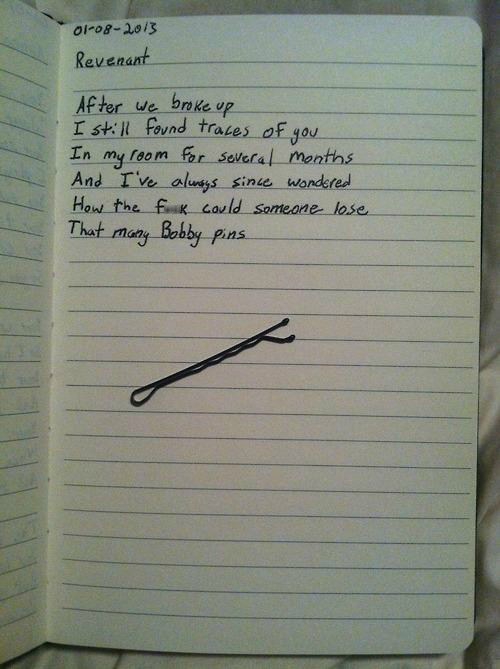 01-08-2013
Revenant
After we broke up
I still found traces of you
In my room for several months
And I've always since wondered
How the f k could someone lose
That many Bobby pins